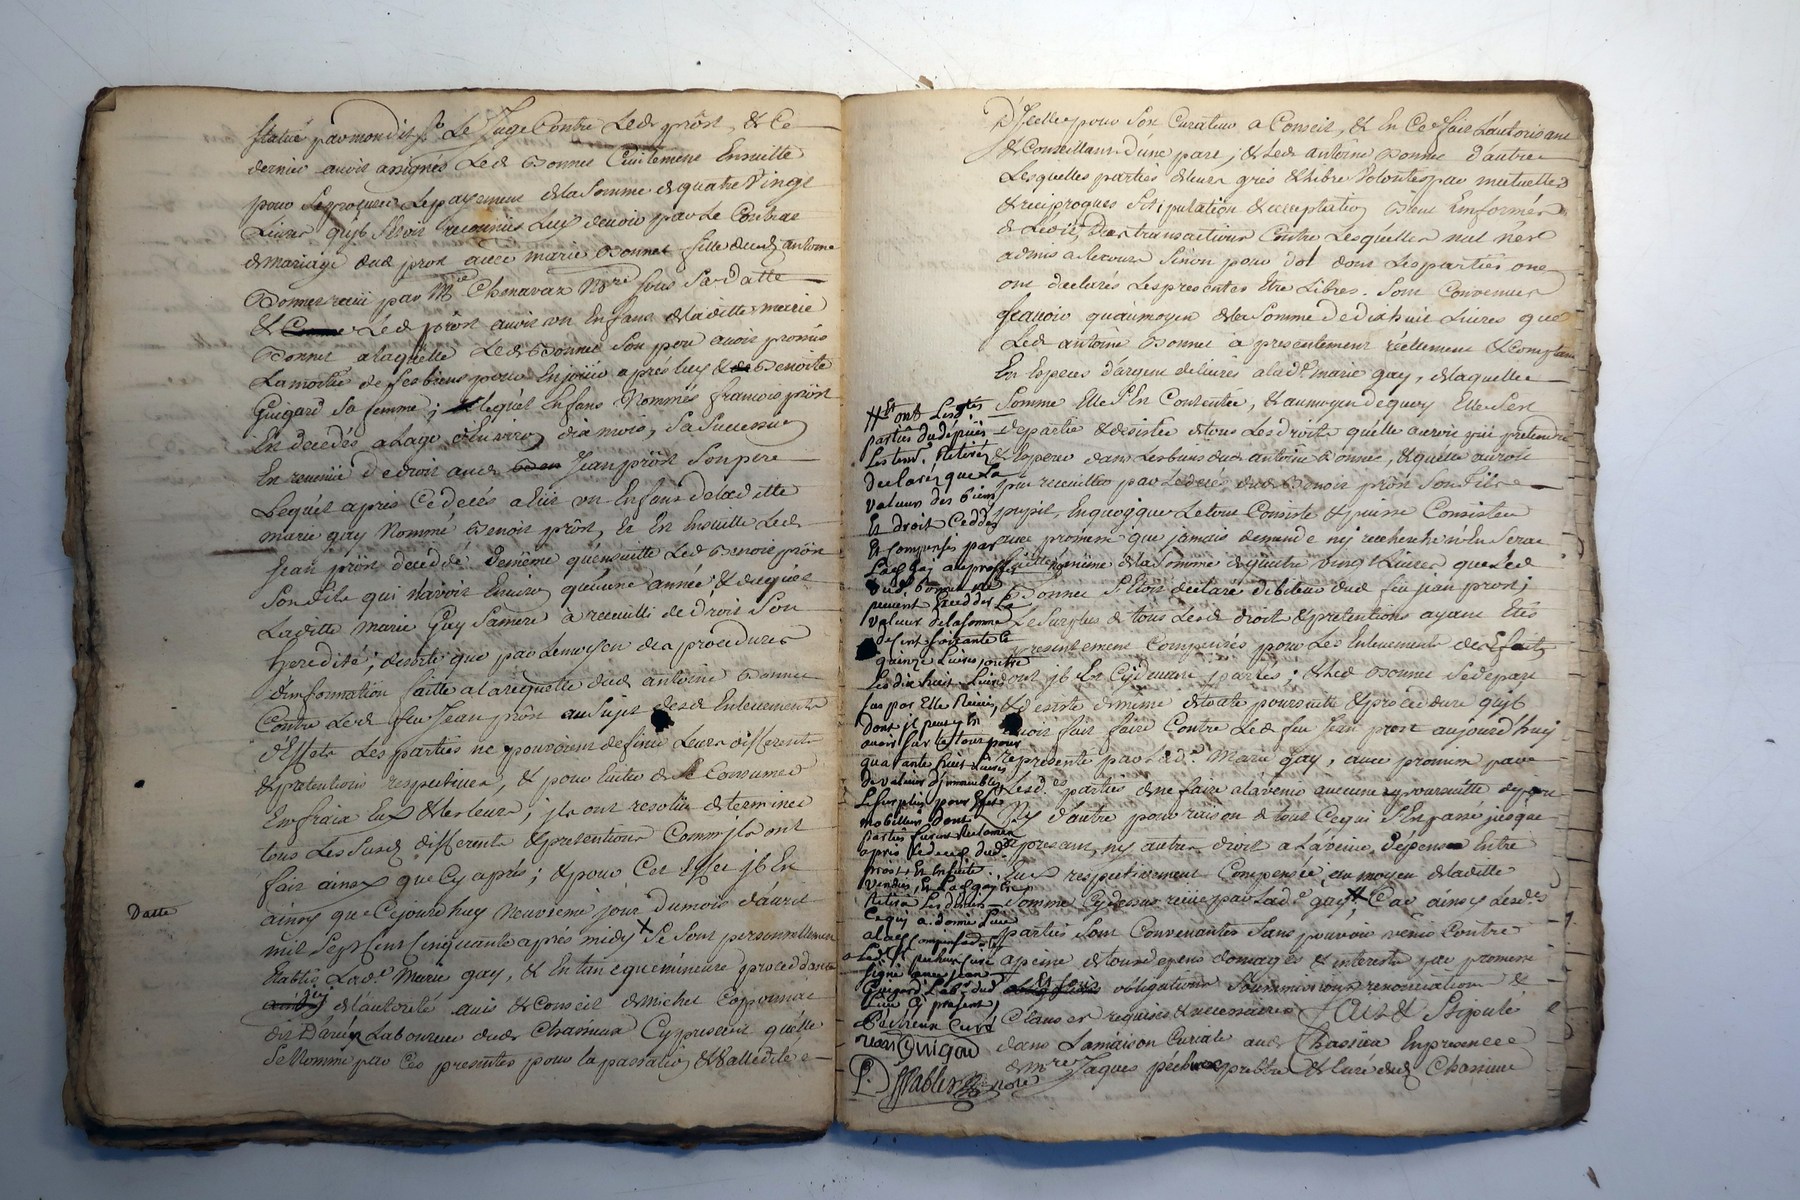 statué par mondit Sr Le Juge Contre Led prôst, & Ce
dernier avoir assignés Led Bonnet Civilement Ensuitte
pour Se procurer Le payement de la Somme de quatre Vingt
Livres qu'il S'Etoit reconnüe Luy devoir par Le Contrat
de mariage dud prost avec marie Bonnet fille dud antoine
Bonnet reçu par Me Chenavaz Nore Sous Sa datte
& Led prôst avoir un Enfant de laditte marie
Bonnet a laquelle Led Bonnet Son pere avoir promis
La moitié de Ses biens pour En jouir aprés luy & Benoite
Guigard Sa femme; lequel Enfant Nommés francois prôst
En decedés a lage d'Environ dix mois, Sa Succession
En revenüe de droit aud Jean prôst Son pere
Lequel aprés Ce decés a Eut un Enfant de laditte
marie gay Nommé Benoit prôst, Et En Ensuitte Led
Jean prôst decedé de même qu'ensuitte Led Benoit prôst
Son fils qui n'avoit Environ qu'une année & duquel
Laditte Marie Gay Sa mere à recueilli de droit Son
heredité; desorte que par Le moyen des procedures
d'information faitte a la requette dud antoine Bonnet
Contre Led feu Jean prôst au Sujet desd Enlevements
d'Effets Les parties ne pouvoient definir Leurs differents
& pretentions respectives, & pour Eviter de Se Consumer
En fraix Eux & les leurs; ils ont resolüe de terminer
tous Les Susd differents & pretentions Comm'ils ont
fait ainsy que Cy aprés; & pour Cet Effet il En
Datte
ainsy que Cejourdhuy Neuvieme jour du mois d'avril
mil Sept Cent Cinquante aprés midy Se Sont personnellement
Etablis Lade Marie gay, & En tant que mineure procedante
de l'autorité avis & Conseil de Michel
dit Laboureur dud Chasseux Cy present qu'elle
Se Nomme par Ces presentes pour la passation & Validité
D'Icelles pour Son Curateur a Conseil, & En Ce fait L'autorisant
& Conseillant d'une part; & Led antoine Bonnet d'autre
Lesquelles parties de leurs gréz & libre Volontés par mutuelle
& reciproques Stipulation & acceptation Bien Enformés
de Loüis Des transactions Contre Lesquelles nul n'Est
admis a Recours Sinon pour dol dont Les parties ont
ont declarés Les presentes Etre Libres. Sont Convenues
Sçavoir qu'aumoyen de la Somme de dix huit Livres que
Led antoine Bonnet à presentement réellement & comptant
En Especes d'argent delivrés a la de Marie gay, de laquelle
Somme Elle S'En Contentée, & aumoyen de quoy Elle S'est
departie & desistée de tous Les droits qu'elle auroit pû pretendre
& Esperer dans Les biens dud antoine Bonnet, & quelle auroit
pu recueillir par Le decés dud Benoit prôst Son fils
jousit, En quoy que Le tout Consiste & puisse Consister
avec promesse que jamais demande ny recherche n'En Sera
faitte même de la Somme de quatre Vingt Livres que Led
Bonnet S'Etoit declaré debiteur dud feu jean prost;
Le Surplus de tous Lesd droit & pretentions ayant Etés
presentement Compensés pour Les Enlevements des Effets
dont il En Cydevant parlés; & Led Bonnet Se depart
& desiste de même de toute poursuitte & procedure qu'il
avoit fait faire Contre Led feu Jean prost aujourd'huy
representé par Lade Marie Gay, avec promesse par
Lesdes parties de ne faire a lavenir aucune poursuitte
Ny d'autre pour raison de tout Ce qui S'En passé jusque
a present, ny autres droit a Lavenir, Dépens Entre
Eux respectivement Compensés, au moyen de laditte
Somme Cydessus reçüe par Lade gay Car ainsy Lesdes
parties Sont Convenantes Sans pouvoir venir Contre
a peine de tous depens domages & interets par promesse
obligations Soummissions renonciations &
Clauses requises & necessaires Fait & Stipulé
dans La maison Curiale aud Chasseux En presence
de mre Jaques pécheux prestre & Curé dud Chasseux
Et ont Lesdtes
parties du dépuis
declaréz que La
valeur des biens
Et Droit Ceddés
Et Compensés par
Lad Gay au proffit
dud Bonnet ne
peuvent Exceder La
valeur de la somme
de Cent soixante Et
quinze Livres outre
Les dix huit Livres
par Elle Reçües,
Dont il peut y En
avoir sur Le tout pour
quarante huit Livres
de valeur d'immeubles
Le surplus pour Effet
mobilliers dont
aprés Le decés dud
prost Et Ensuite
vendus, Et Lad gay En
Retira Les deniers
Ce qui a donné Lieu
a lad Compensation
Led Sr pecheux Curé
signé avec jean
Guigard Labr dud
Lieu Cy present,
Pécheux Curé
jean Guigard